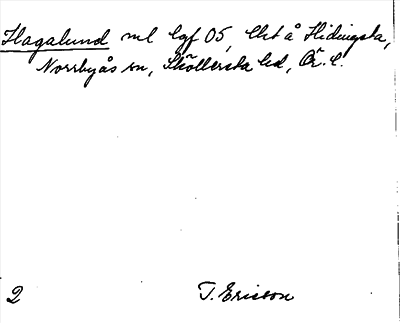 Hagalund ml lgf 05, lht å Hidingsta,
Norrbyås sn, Sköllersta hd, Ör. l.
2 T. Ericson